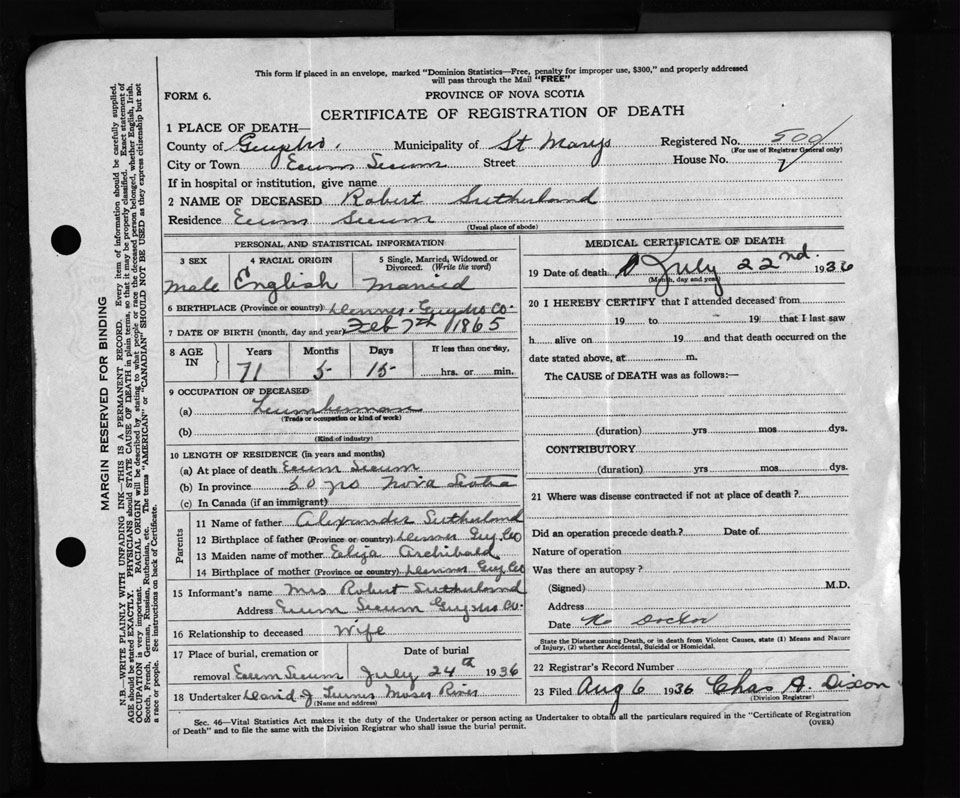 This form if placed in an envelope, marked "Dominion Statistics—Free, penalty for improper use, $300," and properly addressed
will pass through the Mail "FREE"
FORM 6.
PROVINCE OF NOVA SCOTIA
CERTIFICATE OF REGISTRATION OF DEATH
1 PLACE OF DEATH—
County of Guysbro. Municipality of St Marys Registered No. 500
(For use of Registrar General only)
City or Town Ecum Secum Street House No.
If in hospital or institution, give name
2 NAME OF DECEASED Robert Sutherland
Residence Ecum Secum
(Usual place of abode)
PERSONAL AND STATISTICAL INFORMATION
3 SEX 4 RACIAL ORIGIN 5 Single, Married, Widowed or Divorced. (Write the word)
Male English Married
6 BIRTHPLACE (Province or country) Guysbro Co.
7 DATE OF BIRTH (month, day and year) Feb 7th 1865
8 AGE IN Years Months Days If less than one day,
71 5 15 hrs. or min.
9 OCCUPATION OF DECEASED
(a) Lumberman
(Trade or occupation or kind of work)
(b)
(Kind of industry)
10 LENGTH OF RESIDENCE (in years and months)
(a) At place of death Ecum Secum
(b) In province 50 yrs Nova Scotia
(c) In Canada (if an immigrant)
Parents
11 Name of father Alexander Sutherland
12 Birthplace of father (Province or country) Guy. Co
13 Maiden name of mother Eliza Archibald
14 Birthplace of mother (Province or country) Guy Co
15 Informant's name Mrs Robert Sutherland
Address Ecum Secum Guysbro Co.
16 Relationship to deceased Wife
17 Place of burial, cremation or removal Date of burial
Ecum Secum July 24th 1936
18 Undertaker David J. Moser River
(Name and address)
MEDICAL CERTIFICATE OF DEATH
19 Date of death July 22nd. 1936
(Month, day and year)
20 I HEREBY CERTIFY that I attended deceased from
19 to 19 that I last saw
h alive on 19 and that death occurred on the
date stated above, at m.
The CAUSE of DEATH was as follows:—
(duration) yrs mos dys.
CONTRIBUTORY
(duration) yrs mos dys.
21 Where was disease contracted if not at place of death?
Did an operation precede death? Date of
Nature of operation
Was there an autopsy?
(Signed) M.D.
Address
Date No Doctor
State the Disease causing Death, or in death from Violent Causes, state (1) Means and Nature
of Injury, (2) whether Accidental, Suicidal or Homicidal.
22 Registrar's Record Number
23 Filed Aug 6 1936 Chas A. Dixon
(Division Registrar)
Sec. 46—Vital Statistics Act makes it the duty of the Undertaker or person acting as Undertaker to obtain all the particulars required in the "Certificate of Registration
of Death" and to file the same with the Division Registrar who shall issue the burial permit. (OVER)
MARGIN RESERVED FOR BINDING
N.B.—WRITE PLAINLY WITH UNFADING INK—THIS IS A PERMANENT RECORD. Every item of information should be carefully supplied.
AGE should be stated EXACTLY. PHYSICIANS should STATE CAUSE OF DEATH in plain terms, so that it may be properly classified. Exact statement of
OCCUPATION is very important. RACIAL ORIGIN will be described by stating to what people or race the deceased person belonged, whether English, Irish,
Scotch, French, German, Russian, Ruthenian, etc. The terms "AMERICAN" or "CANADIAN" SHOULD NOT BE USED as they express citizenship but not
a race or people. See instructions on back of Certificate.